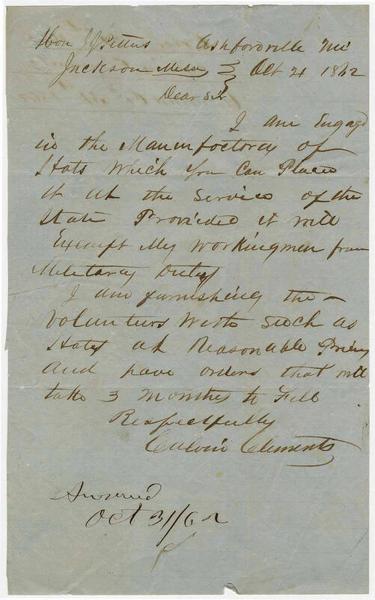 Hon J J Pettus Ashfordville Mi
Jackson Miss Oct 21 1862
Dear Sir
I am Engag
in the Manufactory of
Hats Which you Can Place
it at the Service of the
State Provided it will
Excempt My Workingmen from
Military Duty
I am furnishing the
Volunteers With Such as
Hats at Reasonable Prices
and have orders that will
take 3 Months to Fill
Respectfully
Calvin Clements
Answered
Oct 31/62